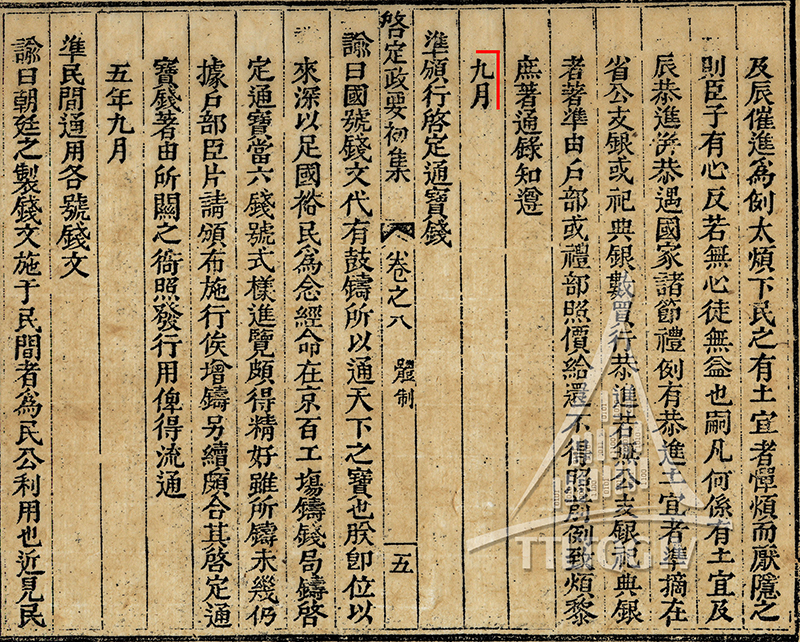 及辰催進爲例太煩下民之有土宜者憚煩而厭隱之
則臣子有心反若無心徒無益也嗣凡何係有土宜及
辰恭進恭遇國家諸節禮例有恭進土宜者準摘在
省公支銀或祀典銀數買行恭進若無公支銀祀典銀
者著準由户部或禮部照價給還不得照前例致煩黎
庶著通錄知遵
九月
準頒行啓定通寶錢
啓定政要初集 卷之八 體制 五
諭曰國號錢文代有鼓鑄所以通天下之寶也朕卽位以
來深以足國裕民爲念經命在京百工塲鑄錢局鑄啓
定通寶當六錢號式樣進覽頗得精好雖所鑄未幾仍
據户部臣片請頒布施行俟增鑄另續頗合其啓定通
寶錢著由所關之衙照發行用俾得流通
五年九月
準民間通用各號錢文
諭曰朝廷之製錢文施于民間者爲民公利用也近見民